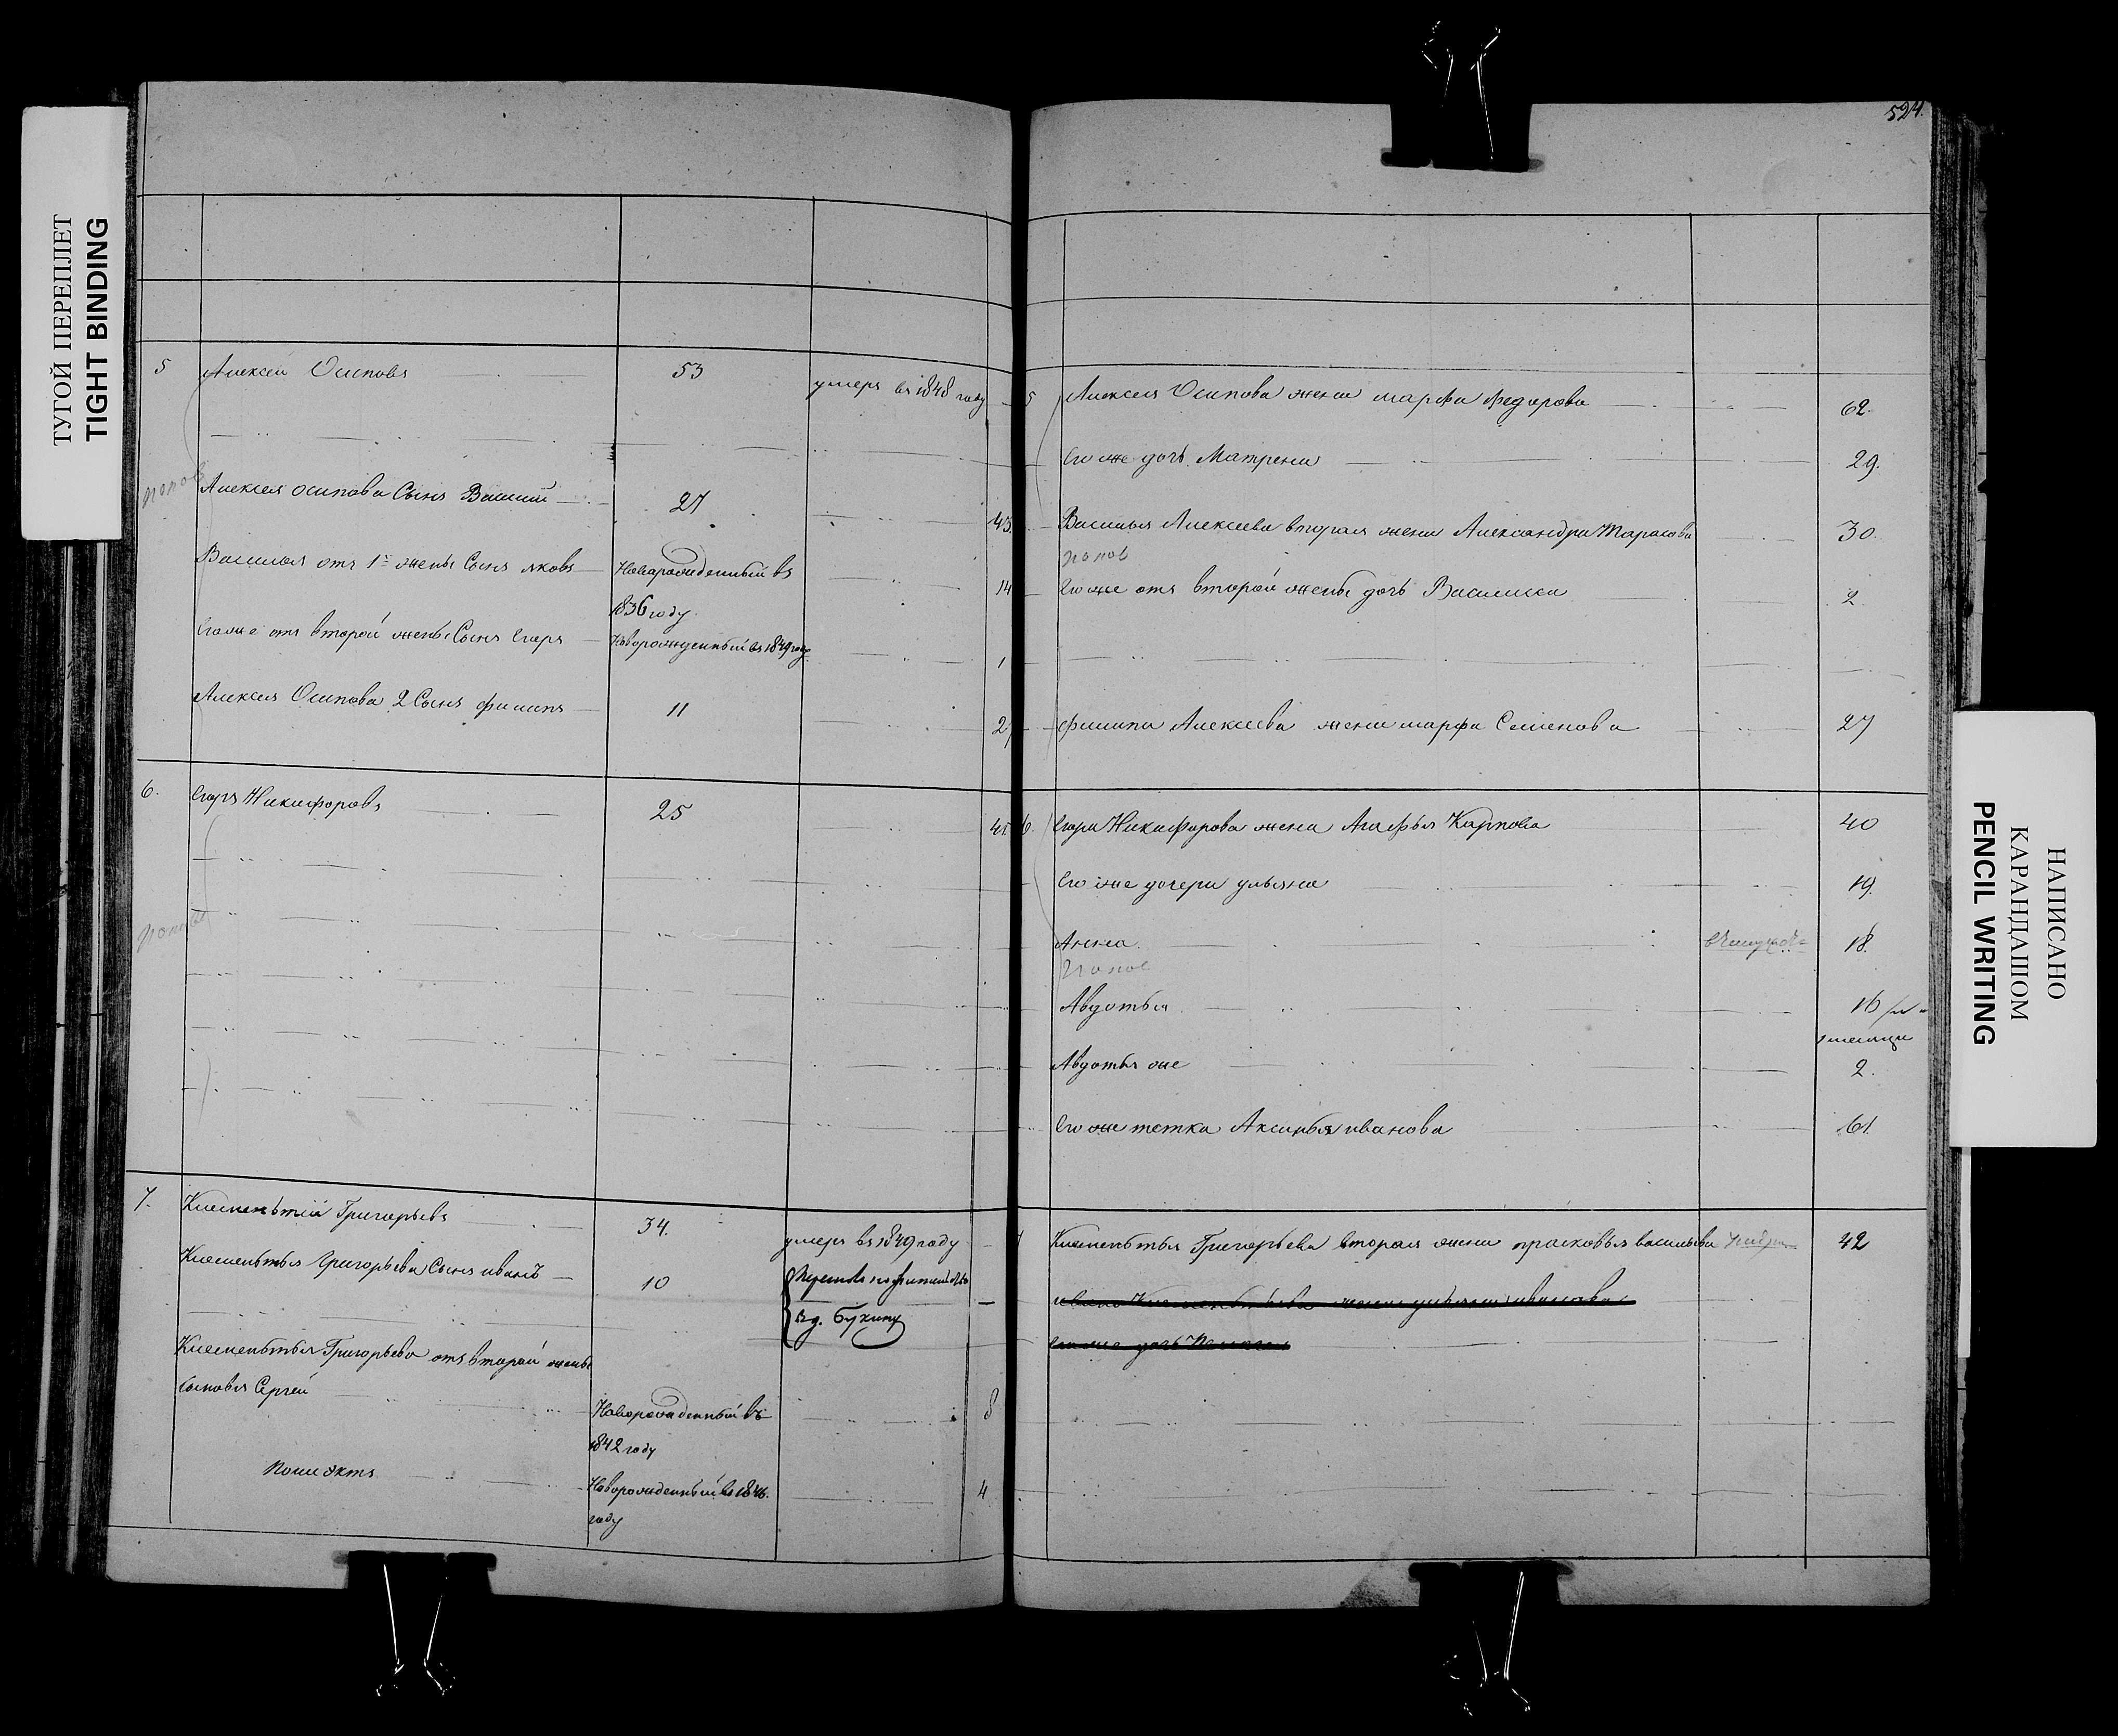 ТУГОЙ ПЕРЕПЛЕТ
TIGHT BINDING
5 Алексей Осиповъ 53 умеръ въ 1848 году
попов
Алексея осипова Сынъ Василий 27 43
Василья отъ 1й жены Сынъ яковъ Новорожденный въ 14
1836 году
Егоже отъ второй жены Сынъ Егоръ Новорожденный въ 1849 году 1
Алексея Осипова 2 Сынъ филипъ 11 27
6. Егоръ Никифоровъ 25 41
попов
7. Клементий Григорьевъ 34. умеръ въ 1849 году
Клементья Григорьева Сынъ иванъ 10
Букину
Клементья Григорьева отъ второй жены
сыновья Сергей Новорожденный въ 8
1842 году
Полиэктъ Новорожденный въ 1846. 4
году
524.
5 Алексея Осипова жена марфа федорова 62.
Его же дочь Матрена 29.
Василья Алексеева вторая жена Александра Тарасова 30.
попов
Его же отъ второй жены дочь Василиса 2
филипа Алексеева жена марфа Семенова 27
6. Егора Никифорова жена Агафья Карпова 40
Его же дочери ульяна 19.
Анна 18.
попов
Авдотья 16
месяца
Авдотья же 2.
Его же тетка Аксинья иванова 61.
7 Клементья Григорьева вторая жена прасковья васильева 42
ивана Клементьева жена ульяна иванова
Егоже дочь
НАПИСАНО
КАРАНДАШОМ
PENCIL WRITING